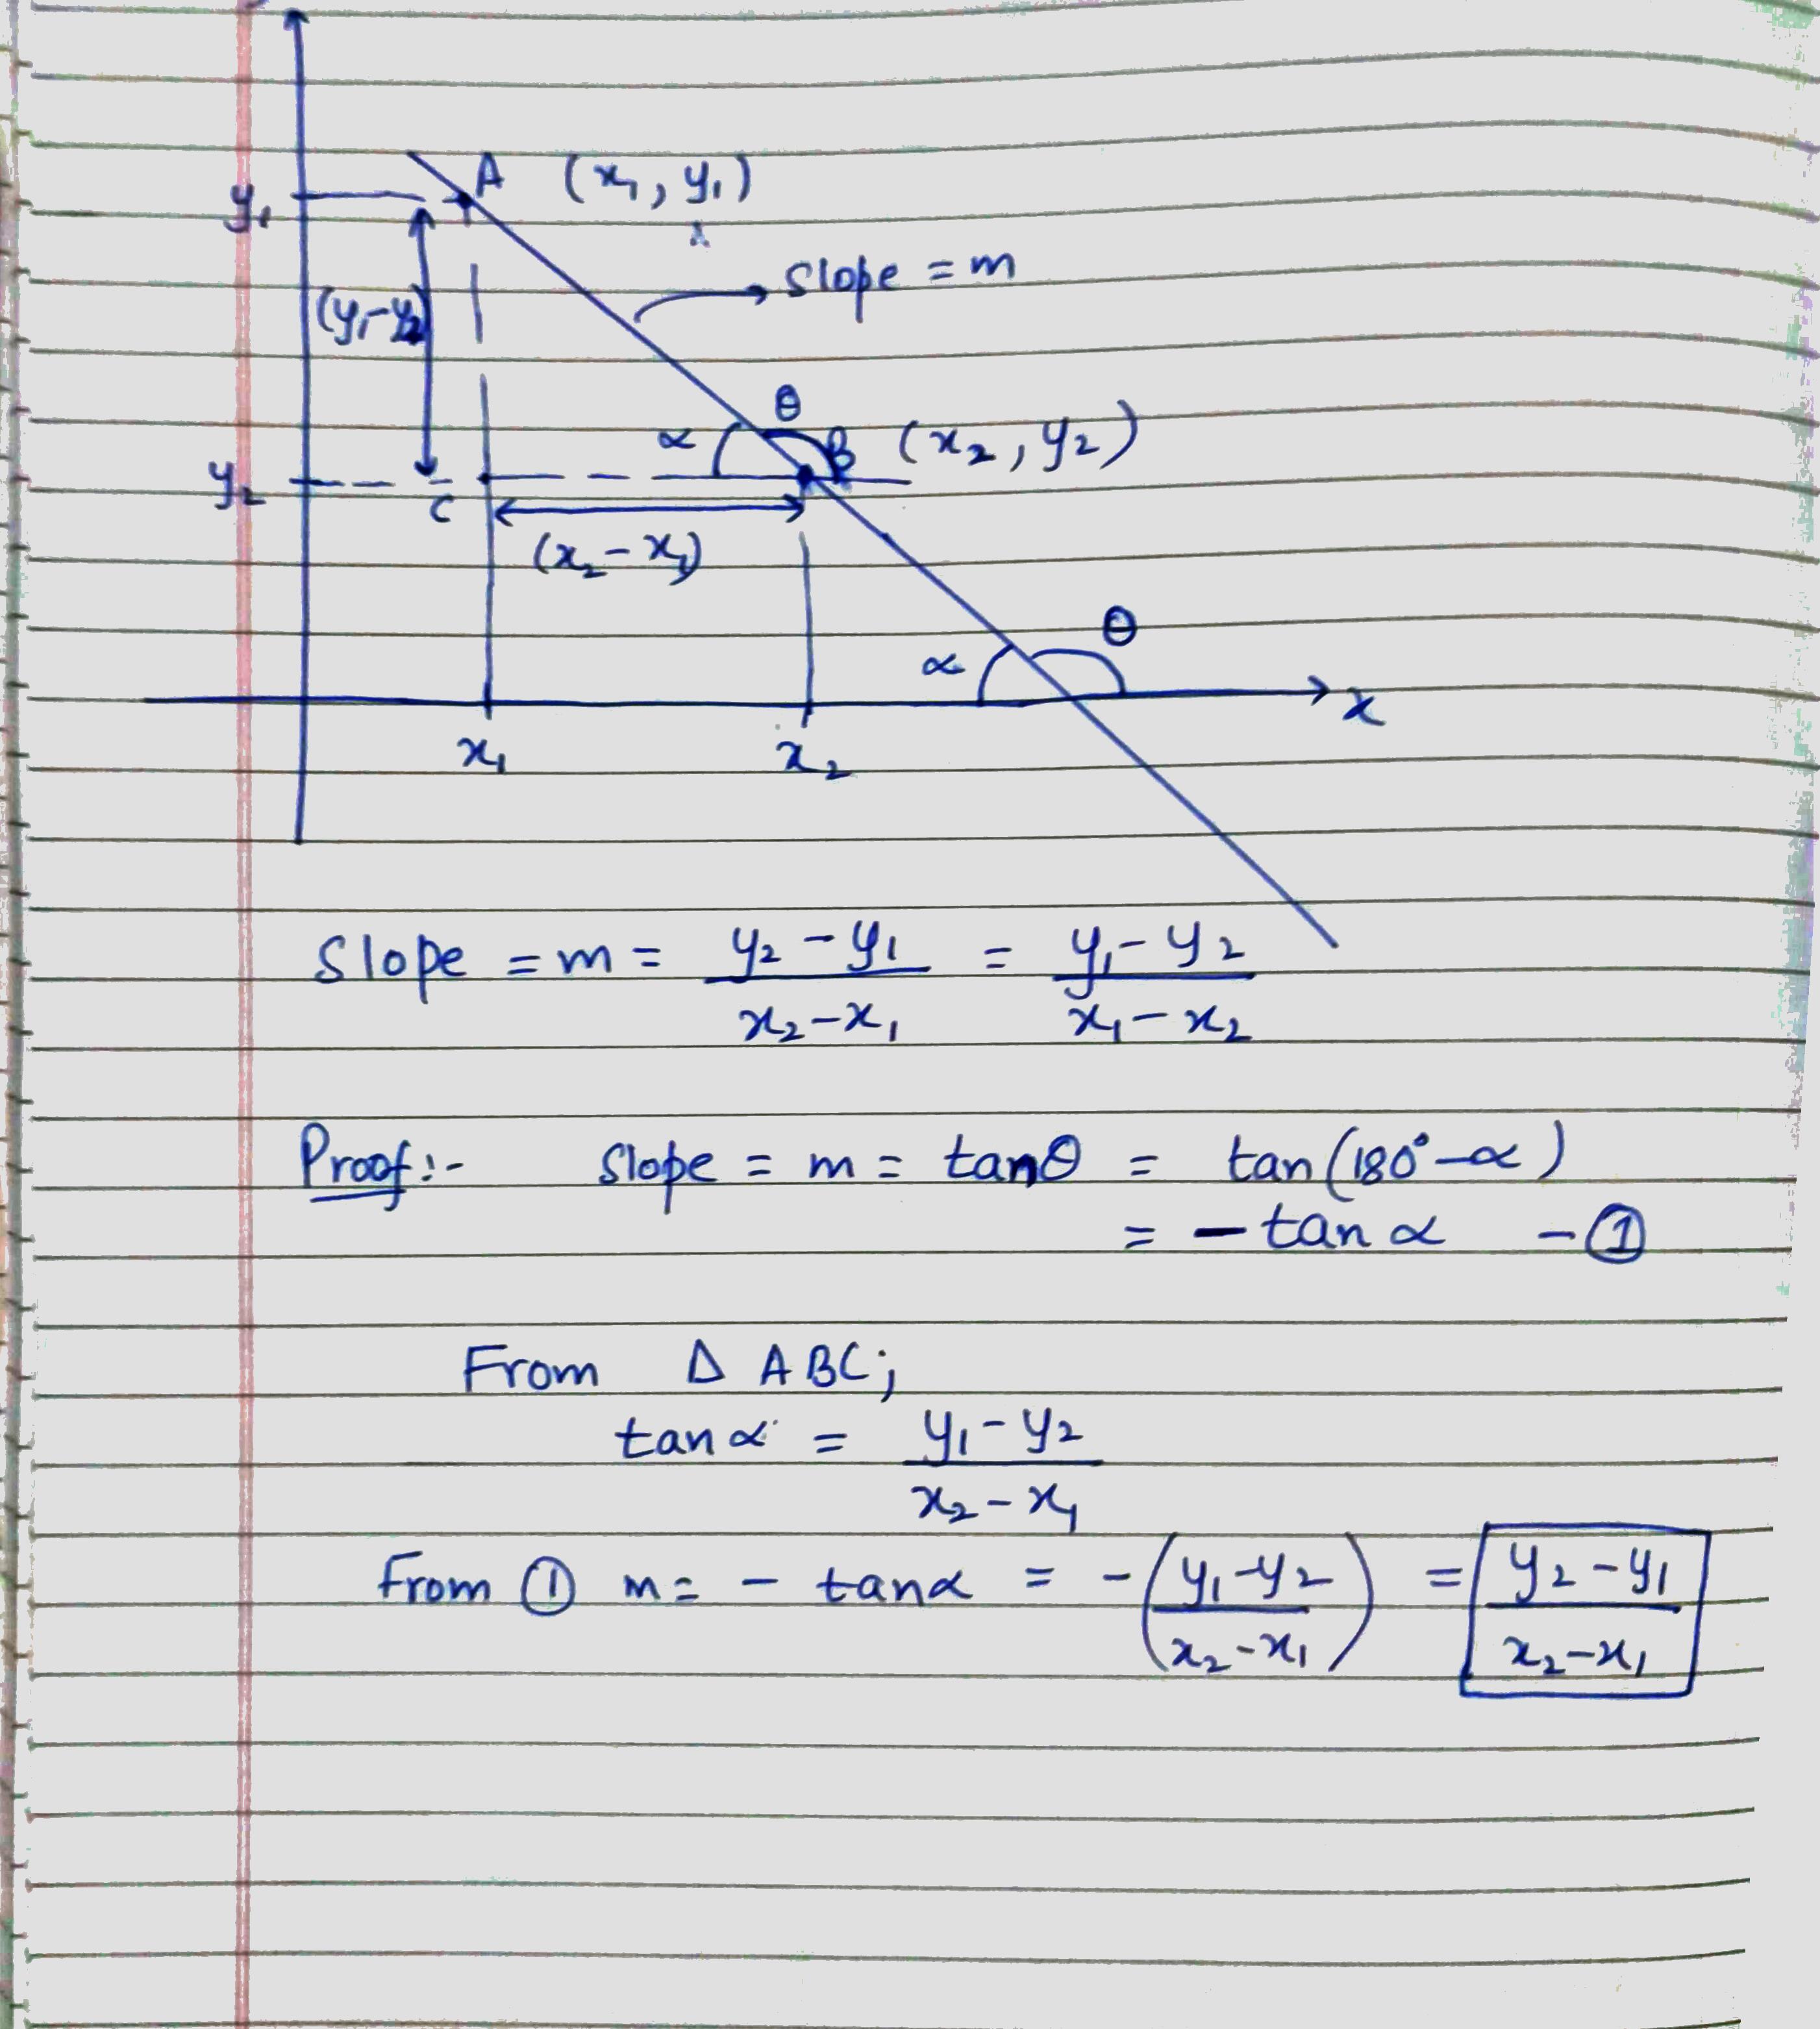 A (x₁, y₁)
y₁
slope = m
(y₁-y₂)
θ
α B (x₂, y₂)
y₂ C
(x₂ - x₁)
θ
α
x
x₁ x₂
Slope = m = (y₂ - y₁)/(x₂ - x₁) = (y₁ - y₂)/(x₁ - x₂)
Proof:- Slope = m = tanθ = tan(180° - α)
= - tan α - ①
From Δ ABC;
tan α = (y₁ - y₂)/(x₂ - x₁)
From ① m = - tanα = -((y₁ - y₂)/(x₂ - x₁)) = (y₂ - y₁)/(x₂ - x₁)